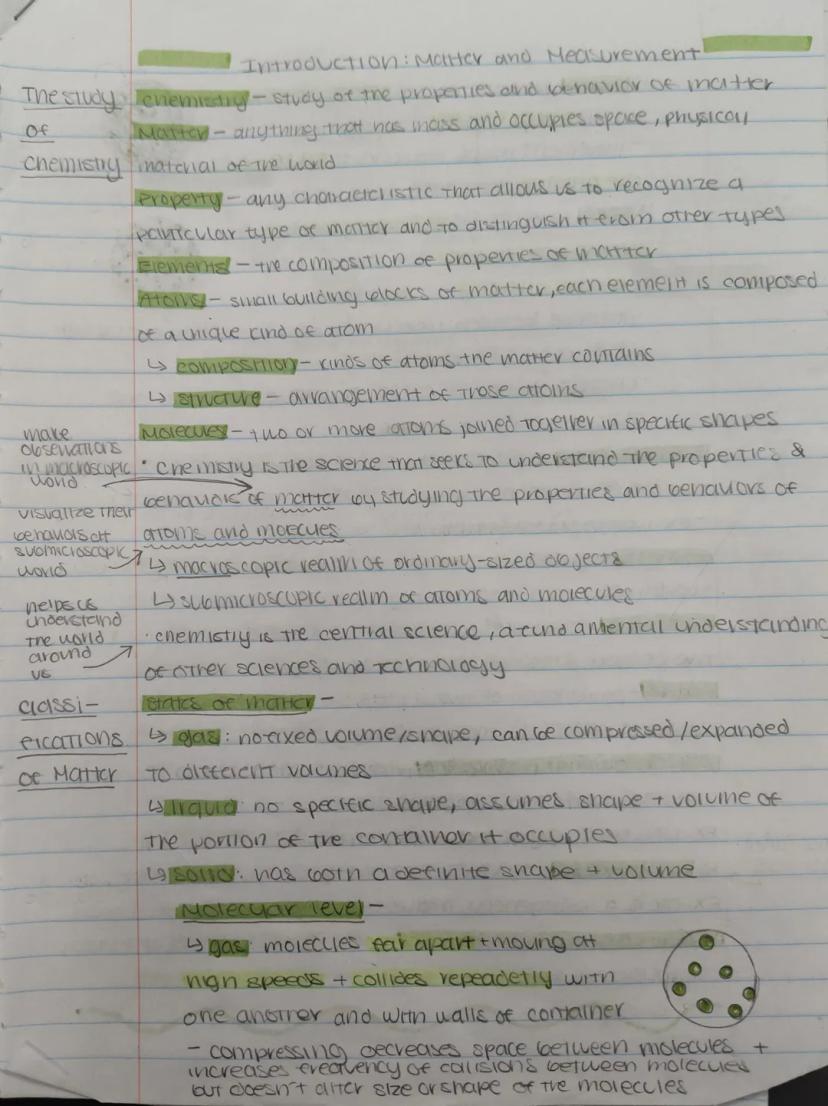 Introduction: Matter and Measurement
The study of chemistry
chemistry - study of the properties and behavior of matter
Matter - anything that has mass and occupies space, physical
material of the world
Property - any characteristic that allows us to recognize a
particular type of matter and to distinguish it from other types
Elements - the composition of properties of matter
Atoms - small building blocks of matter, each element is composed
of a unique kind of atom
↳ composition - kinds of atoms the matter contains
↳ structure - arrangement of those atoms
Molecules - two or more atoms joined together in specific shapes
make
observations
in macroscopic
world
• chemistry is the science that seeks to understand the properties &
behaviors of matter by studying the properties and behaviors of
atoms and molecules
visualize their
behaviors at
submicroscopic
world
↳ macroscopic realm of ordinary-sized objects
↳ submicroscopic realm of atoms and molecules
helps us
understand
the world
around
us
· chemistry is the central science, a fundamental understanding
of other sciences and technology
classi-
fications
of Matter
states of matter -
↳ gas: no fixed volume/shape, can be compressed/expanded
to different volumes
↳ liquid: no specific shape, assumes shape + volume of
the portion of the container it occupies
↳ solid: has both a definite shape + volume
Molecular level -
↳ gas: molecules far apart + moving at
high speeds + collides repeadetly with
one another and with walls of container
- compressing decreases space between molecules +
increases frequency of collisions between molecules
but doesn't alter size or shape of the molecules